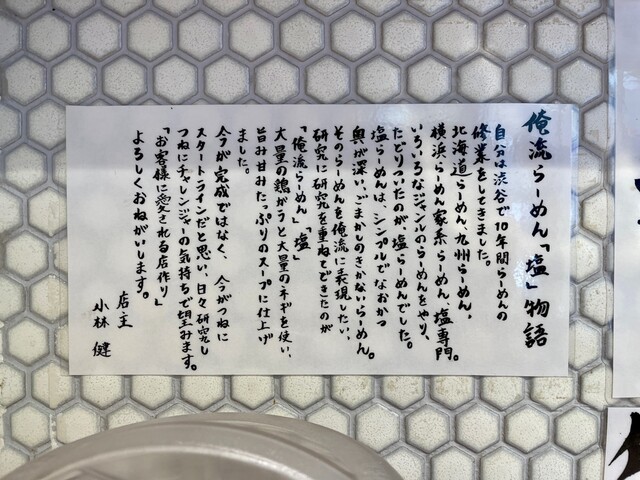 俺流らーめん「塩」物語
自分は渋谷で10年間らーめんの
修業をしてきました。
北海道らーめん、九州らーめん、
横浜らーめん家系らーめん、塩専門。
いろいろなジャンルのらーめんをやり、
たどりついたのが、塩らーめんでした。
塩らーめんは、シンプルでなおかつ
奥が深い、ごまかしのきかないらーめん。
そのらーめんを俺流に表現したい、
研究に研究を重ねてできたのが
「俺流らーめん 塩」
大量の鶏ガラと大量のネギを使い、
旨み甘みたっぷりのスープに仕上げ
ました。
今が完成ではなく、今がつねに
スタートラインだと思い、日々研究し
つねにチャレンジャーの気持ちで望みます。
「お客様に愛される店作り」
よろしくおねがいします。
店主
小林 健